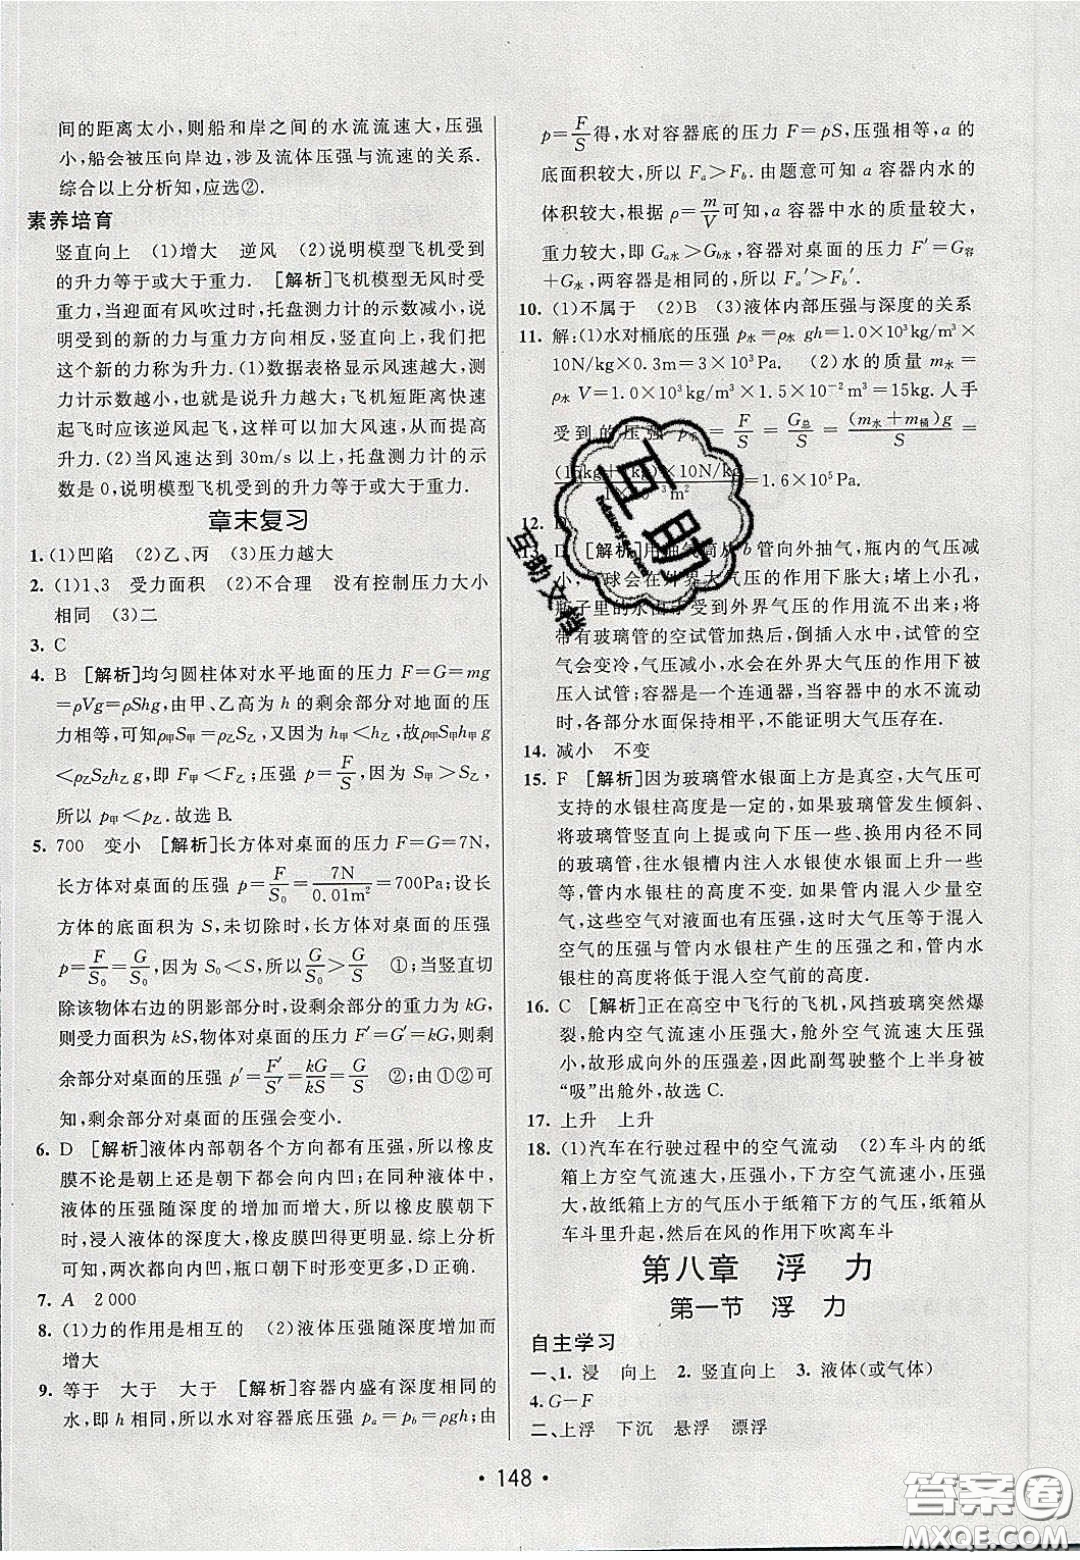 间的距离太小,则船和岸之间的水流流速大,压强
小,船会被压向岸边,涉及流体压强与流速的关系.
综合以上分析知,应选②.
素养培育
竖直向上 (1)增大 逆风 (2)说明模型飞机受到
的升力等于或大于重力. [解析]飞机模型无风时受
重力,当迎面有风吹过时,托盘测力计的示数减小,说
明受到的新的力与重力方向相反,竖直向上,我们把
这个新的力称为升力.(1)数据表格显示风速越大,测
力计示数越小,就是说升力越大;飞机短距离快速
起飞时应该逆风起飞,这样可以加大风速,从而提高
升力.(2)当风速达到30m/s以上,托盘测力计的示
数是0,说明模型飞机受到的升力等于或大于重力.
章末复习
1. (1)凹陷 (2)乙、丙 (3)压力越大
2. (1)1、3 受力面积 (2)不合理 没有控制压力大小
相同 (3)二
3. C
4. B [解析]均匀圆柱体对水平地面的压力 F=G=mg
=ρVg=ρShg,由甲、乙高为h的剩余部分对地面的压
力相等,可知ρ甲S甲=ρ乙S乙,又因为h甲<h乙,故ρ甲S甲h甲g
<ρ乙S乙h乙g,即F甲<F乙;压强 p=F/S,S甲>S乙,
所以 p甲<p乙.故选B.
5. 700 变小 [解析]长方体对桌面的压力F=G=7N,
长方体对桌面的压强 p=F/S₀=7N/0.01m²=700Pa;设长
方体的底面积为S,未切除时,长方体对桌面的压强
p=F/S₀=G/S₀,因为S₀<S,所以G/S₀>G/S ①;当竖直切
除该物体右边的阴影部分时,设剩余部分的重力为kG,
则受力面积为kS,物体对桌面的压力F′=G′=kG,则剩
余部分对桌面的压强 p′=F′/S′=kG/kS=G/S ②;由①②可
知,剩余部分对桌面的压强会变小.
6. D [解析]液体内部朝各个方向都有压强,所以橡皮
膜不论是朝上还是朝下都会向内凹;在同种液体中,
液体的压强随深度的增加而增大,所以橡皮膜朝下
时,浸入液体的深度大,橡皮膜凹得更明显.综上分析
可知,两次都向内凹,瓶口朝下时形变更多,D正确.
7. A 2 000
8. (1)力的作用是相互的 (2)液体压强随深度增加而
增大
9. 等于 大于 大于 [解析]容器内盛有深度相同的
水,即h相同,所以水对容器底压强 pₐ=p_b=ρgh;由
p=F/S得,水对容器底的压力F=pS,压强相等,a的
底面积较大,所以Fₐ>F_b.由题意可知a容器内水的
体积较大,根据ρ=m/V可知,a容器中水的质量较大,
重力较大,即Gₐ水>G_b水,容器对桌面的压力F′=G容
+G水,两容器是相同的,所以Fₐ′>F_b′.
10. (1)不属于 (2)B (3)液体内部压强与深度的关系
11. 解:(1)水对桶底的压强 p水=ρ水gh=1.0×10³kg/m³×
10N/kg×0.3m=3×10³Pa. (2)水的质量 m水=
ρ水V=1.0×10³kg/m³×1.5×10⁻²m³=15kg. 人手
受到的压强 =F/S=G总/S=(m水+m桶)g/S=
(15kg+1kg)×10N/kg/1×10⁻³m²=1.6×10⁵Pa.
12. D
13. D [解析]用抽气筒从b管向外抽气,瓶内的气压减
小,气球会在外界大气压的作用下胀大;堵上小孔,
瓶子里的水由于受到外界气压的作用而流不出来;将
带有玻璃管的空试管加热后,倒插入水中,试管的空
气会变冷,气压减小,水会在外界大气压的作用下被
压入试管;容器是一个连通器,当容器中的水不流动
时,各部分水面保持相平,不能证明大气压存在.
14. 减小 不变
15. F [解析]因为玻璃管水银面上方是真空,大气压可
支持的水银柱高度是一定的,如果玻璃管发生倾斜、
将玻璃管竖直向上提或下压一些、换用内径不同的
玻璃管,往水银槽内注入水银使水银面上升一些
等,管内水银柱的高度不变.如果管内混入少量空
气,这些空气对液面也有压强,这时大气压等于混入
空气的压强与管内水银柱产生的压强之和,管内水
银柱的高度将低于混入空气前的高度.
16. C [解析]正在高空中飞行的飞机,风挡玻璃突然爆
裂,舱内空气流速小压强大,舱外空气流速大压强
小,故形成向外的压强差,因此副驾驶整个上半身被
“吸”出舱外,故选C.
17. 上升 上升
18. (1)汽车在行驶过程中的空气流动 (2)车斗内的纸
箱上方空气流速大,压强小,下方空气流速小,压强
大,故纸箱上方的气压小于纸箱下方的气压,纸箱从
车斗里升起,然后在风的作用下吹离车斗
第八章 浮 力
第一节 浮 力
自主学习
一、1. 浸 向上 2. 竖直向上 3. 液体(或气体)
4. G-F
二、上浮 下沉 悬浮 漂浮
• 148 •
互助
互助文档
答案圈
MXQE.COM